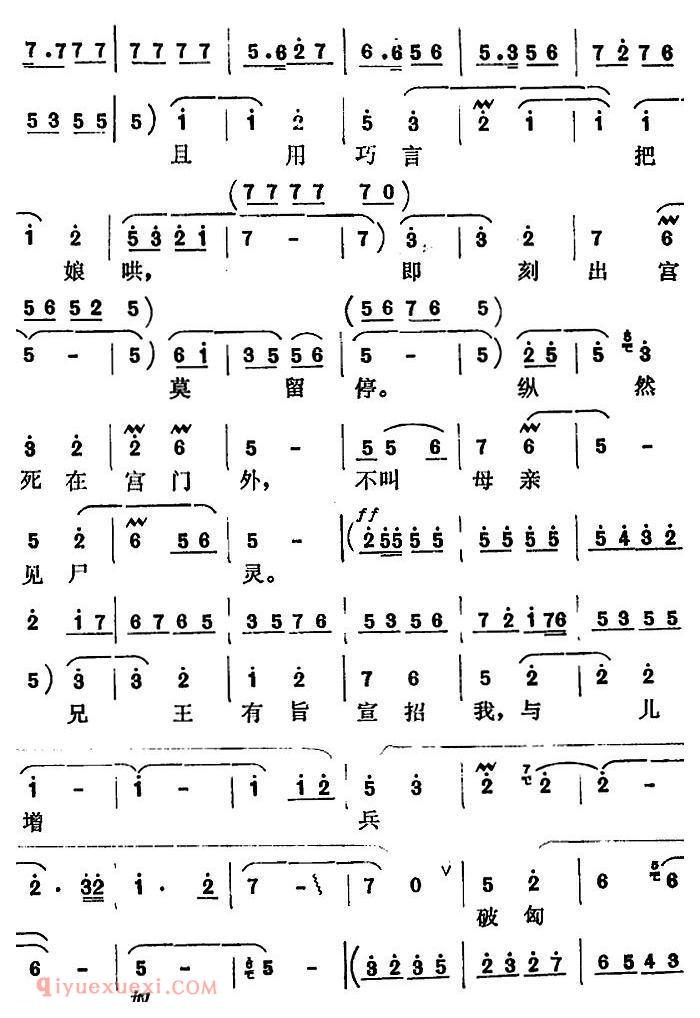 7.777 7 | 7777 | 5.627 | 6.656 | 5.356 | 7276
5355 | 5) 1 | 1 2 | 5 3 | 2 1 | 1 1
且 用 巧 言 把
(7 7 7 7 7 0)
1 2 | 5321 | 7 - | 7) 3 | 3 2 | 7 6
娘 哄， 即 刻 出 宫
5 6 5 2 5) (5 6 7 6 5)
5 - | 5) 61 | 35 56 | 5 - | 5) 25 | 5 3
莫 留 停。 纵 然
3 2 | 2 6 | 5 - | 5 5 6 | 7 6 | 5 -
死 在 宫 门 外， 不 叫 母 亲
ff
5 2 | 6 56 | 5 - | (25555 | 5555 | 5432
见 尸 灵。
2 17 | 6765 | 3576 | 5356 | 72176 | 5355
5) 3 | 3 2 | 1 2 | 7 6 | 5 2 | 2 2
兄 王 有 旨 宣 招 我， 与 儿
1 - | 1 - | 1 12 | 5 3 | 2 2 | 2 -
增 兵
2. 32 | 1. 2 | 7 - | 7 0 V | 5 2 | 6 6
破 匈
6 - | 5 - | 5 - | (3235 | 2327 | 6543
奴
qiyuexuexi.com